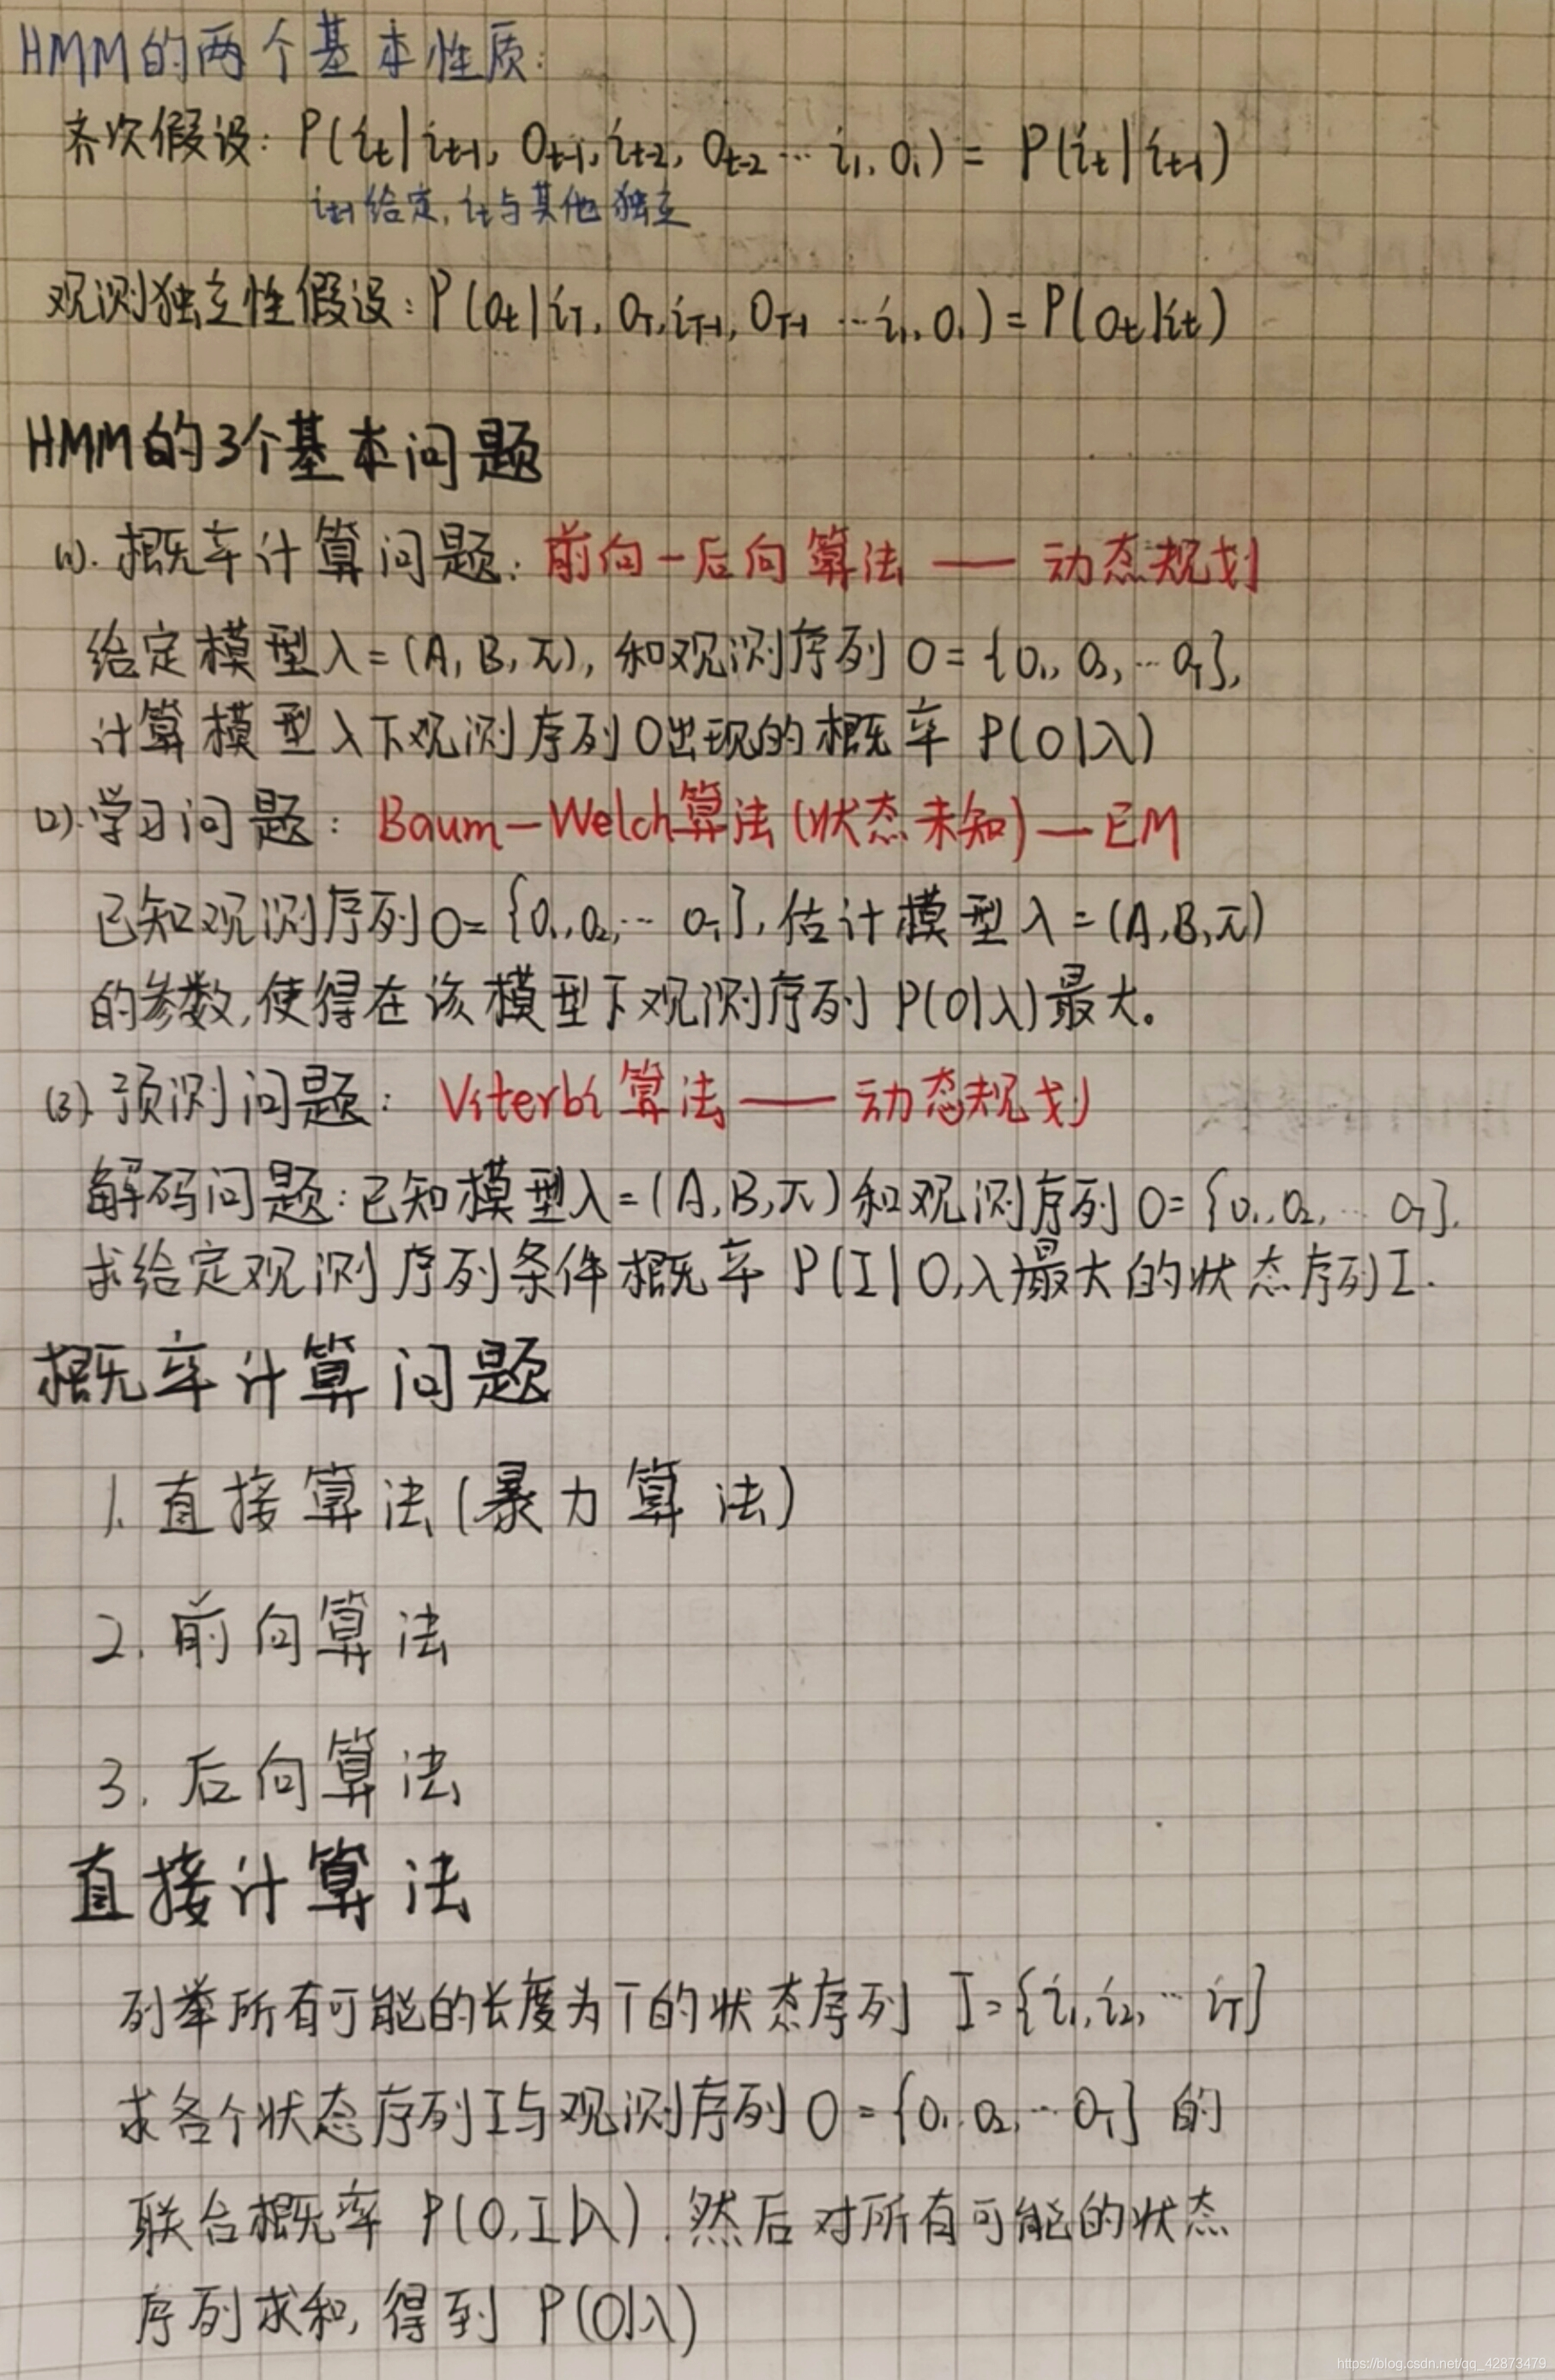 HMM的两个基本性质:
齐次假设: P(i_t|i_{t-1}, O_{t-1}, i_{t-2}, O_{t-2} ... i_1, O_1) = P(i_t|i_{t-1})
i_{t-1}给定, i_t与其他独立
观测独立性假设: P(O_t|i_T, O_T, i_{T-1}, O_{T-1} ... i_1, O_1) = P(O_t|i_t)
HMM的3个基本问题
(1). 概率计算问题: 前向-后向算法 —— 动态规划
给定模型λ=(A, B, π), 和观测序列 O={O_1, O_2, ... O_T},
计算模型λ下观测序列O出现的概率 P(O|λ)
(2). 学习问题: Baum-Welch算法(状态未知)—EM
已知观测序列O={O_1, O_2, ... O_T}, 估计模型λ=(A,B,π)
的参数,使得在该模型下观测序列 P(O|λ)最大。
(3). 预测问题: Viterbi算法 —— 动态规划
解码问题:已知模型λ=(A,B,π)和观测序列O={O_1, O_2, ... O_T}.
求给定观测序列条件概率 P(I|O,λ)最大的状态序列I.
概率计算问题
1. 直接算法(暴力算法)
2. 前向算法
3. 后向算法
直接计算法
列举所有可能的长度为T的状态序列 I={i_1, i_2, ... i_T}
求各个状态序列I与观测序列O={O_1, O_2, ... O_T} 的
联合概率 P(O,I|λ). 然后对所有可能的状态
序列求和, 得到 P(O|λ)
https://blog.csdn.net/qq_42873479